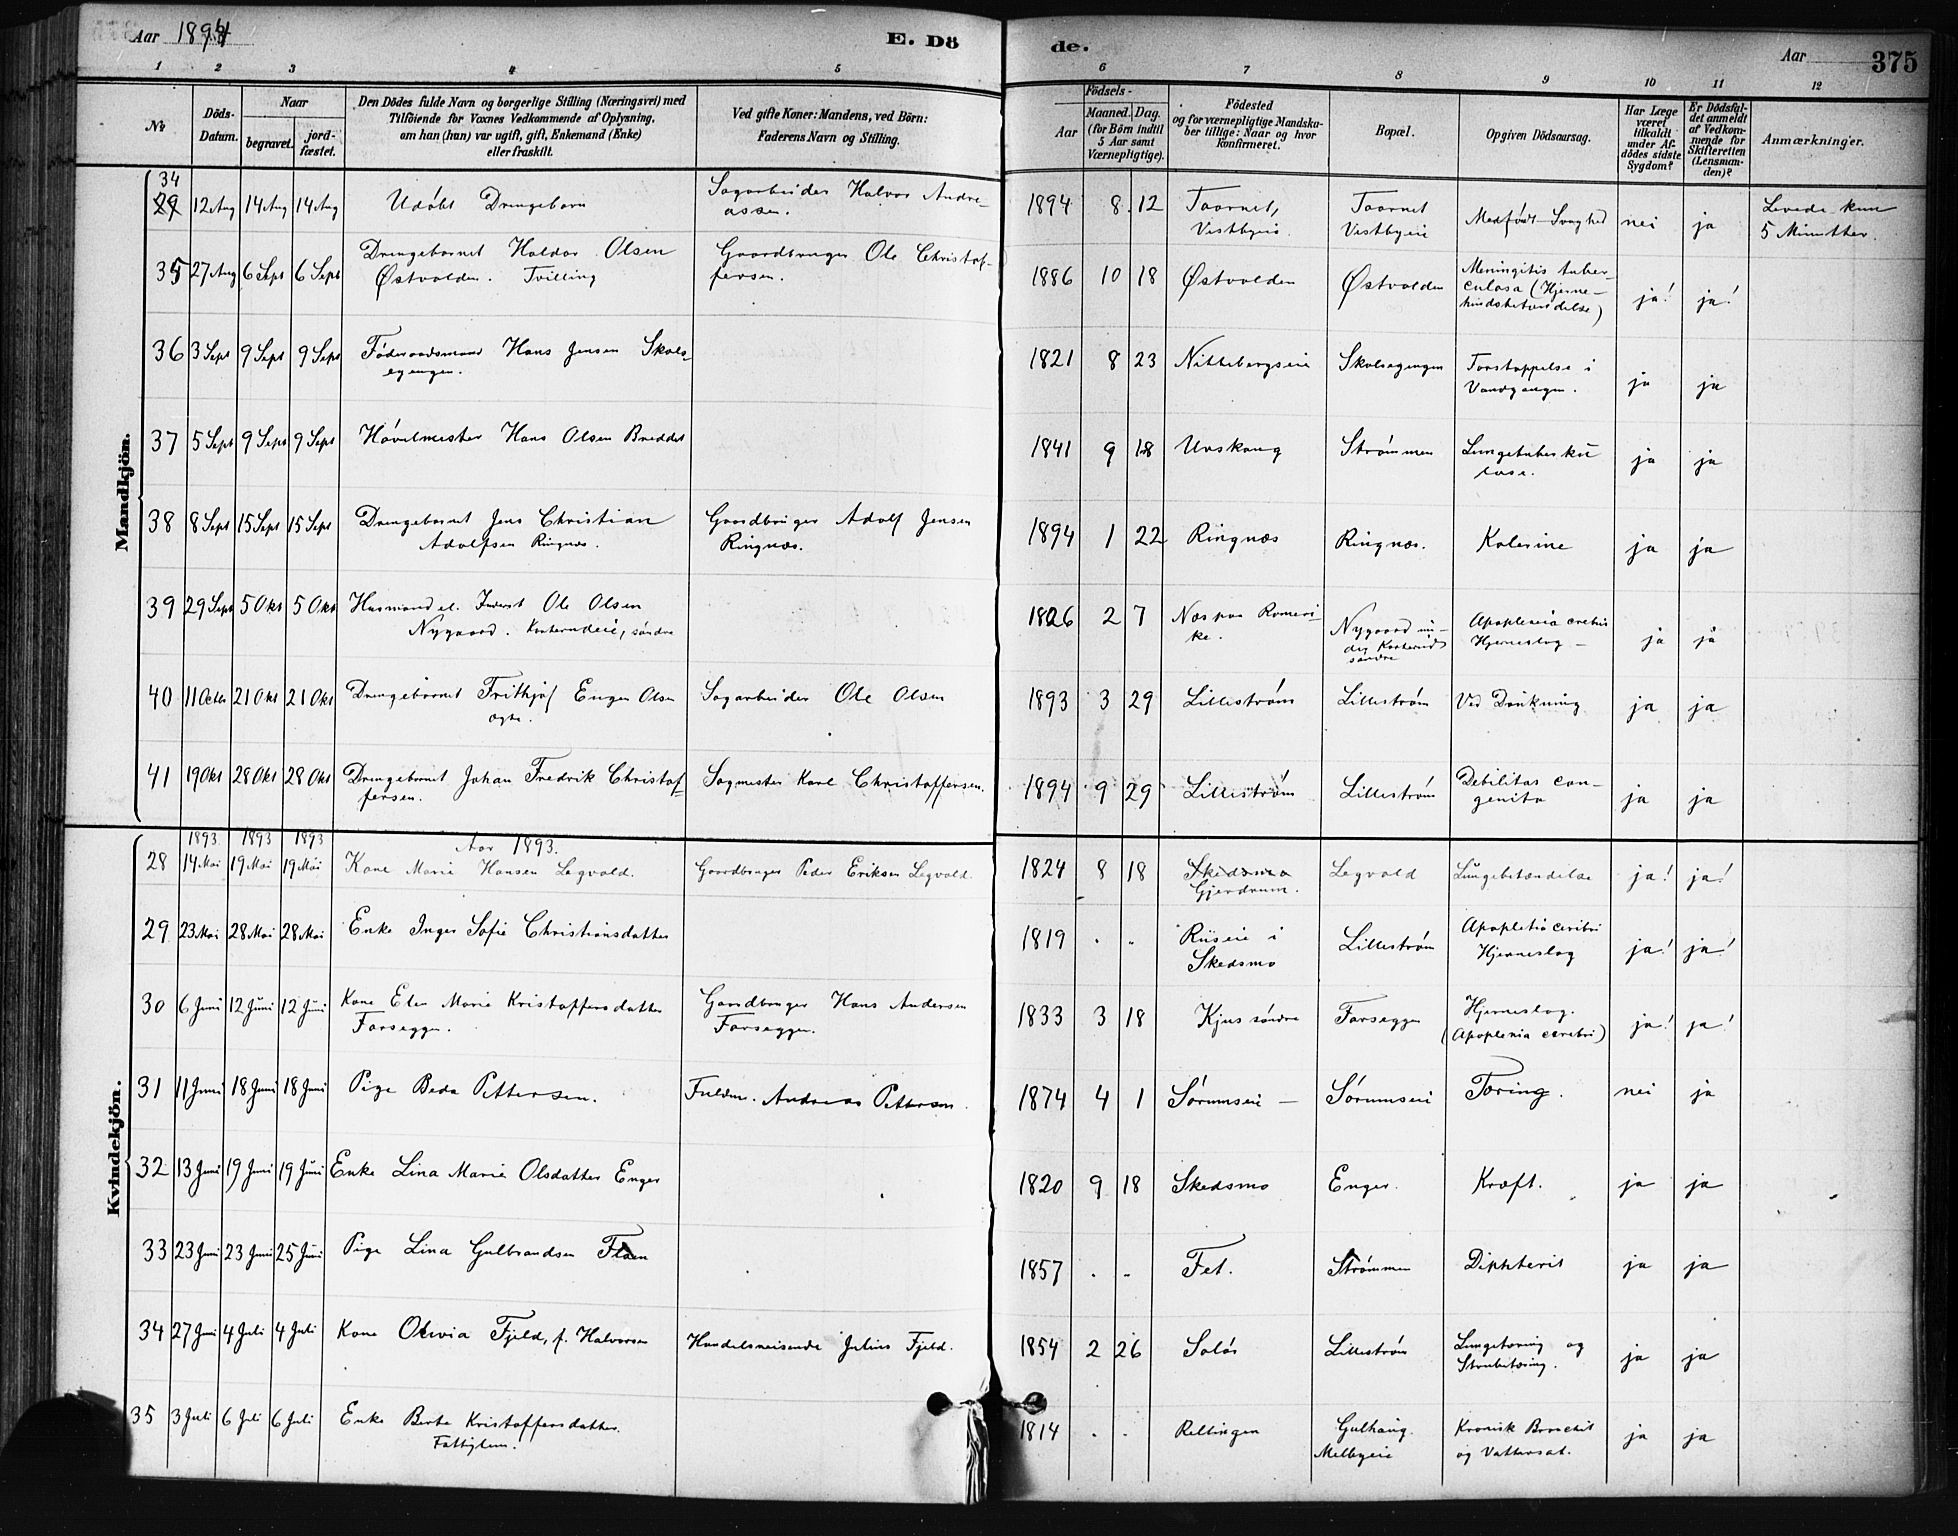 Aar 1894 E. Dö de. Aar 375
1 2 3 4 5 6 7 8 9 10 11 12
No
Döds-Datum.
Naar
begravet.
jordfæstet.
Den Dödes fulde Navn og borgerlige Stilling (Næringsvei) med
Tilföiende for Voxnes Vedkommende af Oplysning,
om han (hun) var ugift, gift, Enkemand (Enke)
eller fraskilt.
Ved gifte Koner: Mandens, ved Börn:
Faderens Navn og Stilling.
Födsels-
Aar
Maaned. Dag.
(for Börn indtil
5 Aar samt
Værnepligtige).
Födested
og for værnepligtige Mandskaber
tillige: Naar og hvor
konfirmeret.
Bopæl.
Opgiven Dödsaarsag.
Har Læge
været
tilkaldt
under Afdödes
sidste
Sygdom?
Er Dödsfaldet
anmeldt
af Vedkommende
for
Skifteretten
(Lensmanden)?
Anmærkninger.
Mandkjön.
34 29 12 Aug 14 Aug 14 Aug Udøbt Drengebarn Sagarbeider Halvor Andreassen. 1894 8 12 Vestbyeie Vestbyeie Medfødt Svaghed nei ja Levede kun
5 Minutter.
35 27 Aug 6 Sept 6 Sept Drengebarnet Haldor Olsen Gaardbruger Ole Christof-
Østvolden. Tvilling fersen. 1886 10 18 Østvolden Østvolden Meningitis tuber-
culosa (Hjerne-
hindebetændelse) ja! ja!
36 3 Sept 9 Sept 9 Sept Føderaadsmand Hans Jensen Skols-
egengen. 1821 8 23 Nittebergseie Skolsegengen Forstoppelse i
Vandgangen. ja ja
37 5 Sept 9 Sept 9 Sept Høvelmester Hans Olsen Breddet 1841 9 18 Urskoug Strømmen Lungetuberku
lose. ja ja
38 8 Sept 15 Sept 15 Sept Drengebarnet Jens Christian Gaardbruger Adolf Jensen
Adolfsen Ringnæs. Ringnæs. 1894 1 22 Ringnæs Ringnæs. Kolerine ja ja
39 29 Sept 5 Okt 5 Okt Husmand el. Inderst Ole Olsen
Nygaard. søndre 1826 2 7 Næs paa Romeri-
ke. Nygaard un-
der
søndre Apoplexia cerebri
Hjerneslag ja ja
40 11 Octbr 21 Okt 21 Okt Drengebarnet Frithjof Enger Olsen Sagarbeider Ole Olsen 1893 3 29 Lillestrøm Lillestrøm Ved Drukning ja ja
41 19 Okt 28 Okt 28 Okt Drengebarnet Johan Fredrik Christof-
fersen. Sagmester Karl Christoffersen. 1894 9 29 Lillestrøm Lillestrøm Debilitas con-
genita ja ja
Kvindekjön.
1893 1893 1893 Aar 1893.
28 14 Mai 19 Mai 19 Mai Kone Marie Hansen Legvold. Gaardbruger Peder Eriksen Legvold. 1824 8 18 Skedsmo
Gjerdrum. Legvold Lungebetændelse ja! ja!
29 23 Mai 28 Mai 28 Mai Enke Inger Sofie Christiansdatter 1819 . . Riiseie i
Skedsmo Lillestrøm Apopletia cerebri
Hjerneslag ja! ja!
30 6 Juni 12 Juni 12 Juni Kone Elen Marie Kristoffersdatter Gaardbruger Hans Andersen
Farseggen. Farseggen. 1833 3 18 Kjus søndre Farseggen Hjerneslag.
(Apoplexia cerebri) ja! ja!
31 11 Juni 18 Juni 18 Juni Pige Beda Pettersen. Andreas Pettersen. 1874 4 1 Sørumseie Sørumseie Tæring. nei ja
32 13 Juni 19 Juni 19 Juni Enke Lina Marie Olsdatter Enger 1820 9 18 Skedsmo Enger. Kræft. ja ja
33 23 Juni 23 Juni 25 Juni Pige Lina Gulbrandsen Flaen 1857 . . Fet. Strømmen Diphterit ja ja
34 27 Juni 4 Juli 4 Juli Kone Olivia Fjeld, f. Halvorsen Handelsreisende Julius Fjeld. 1854 2 26 Solør Lillestrøm Lungetæring og
Strubetæring. ja ja
35 3 Juli 6 Juli 6 Juli Enke Berte Kristoffersdatter.
Fattiglem. 1814 . . Rellingen Gulhaug.
Melbyeie Kronisk Bronchit
og Vattersot. ja ja